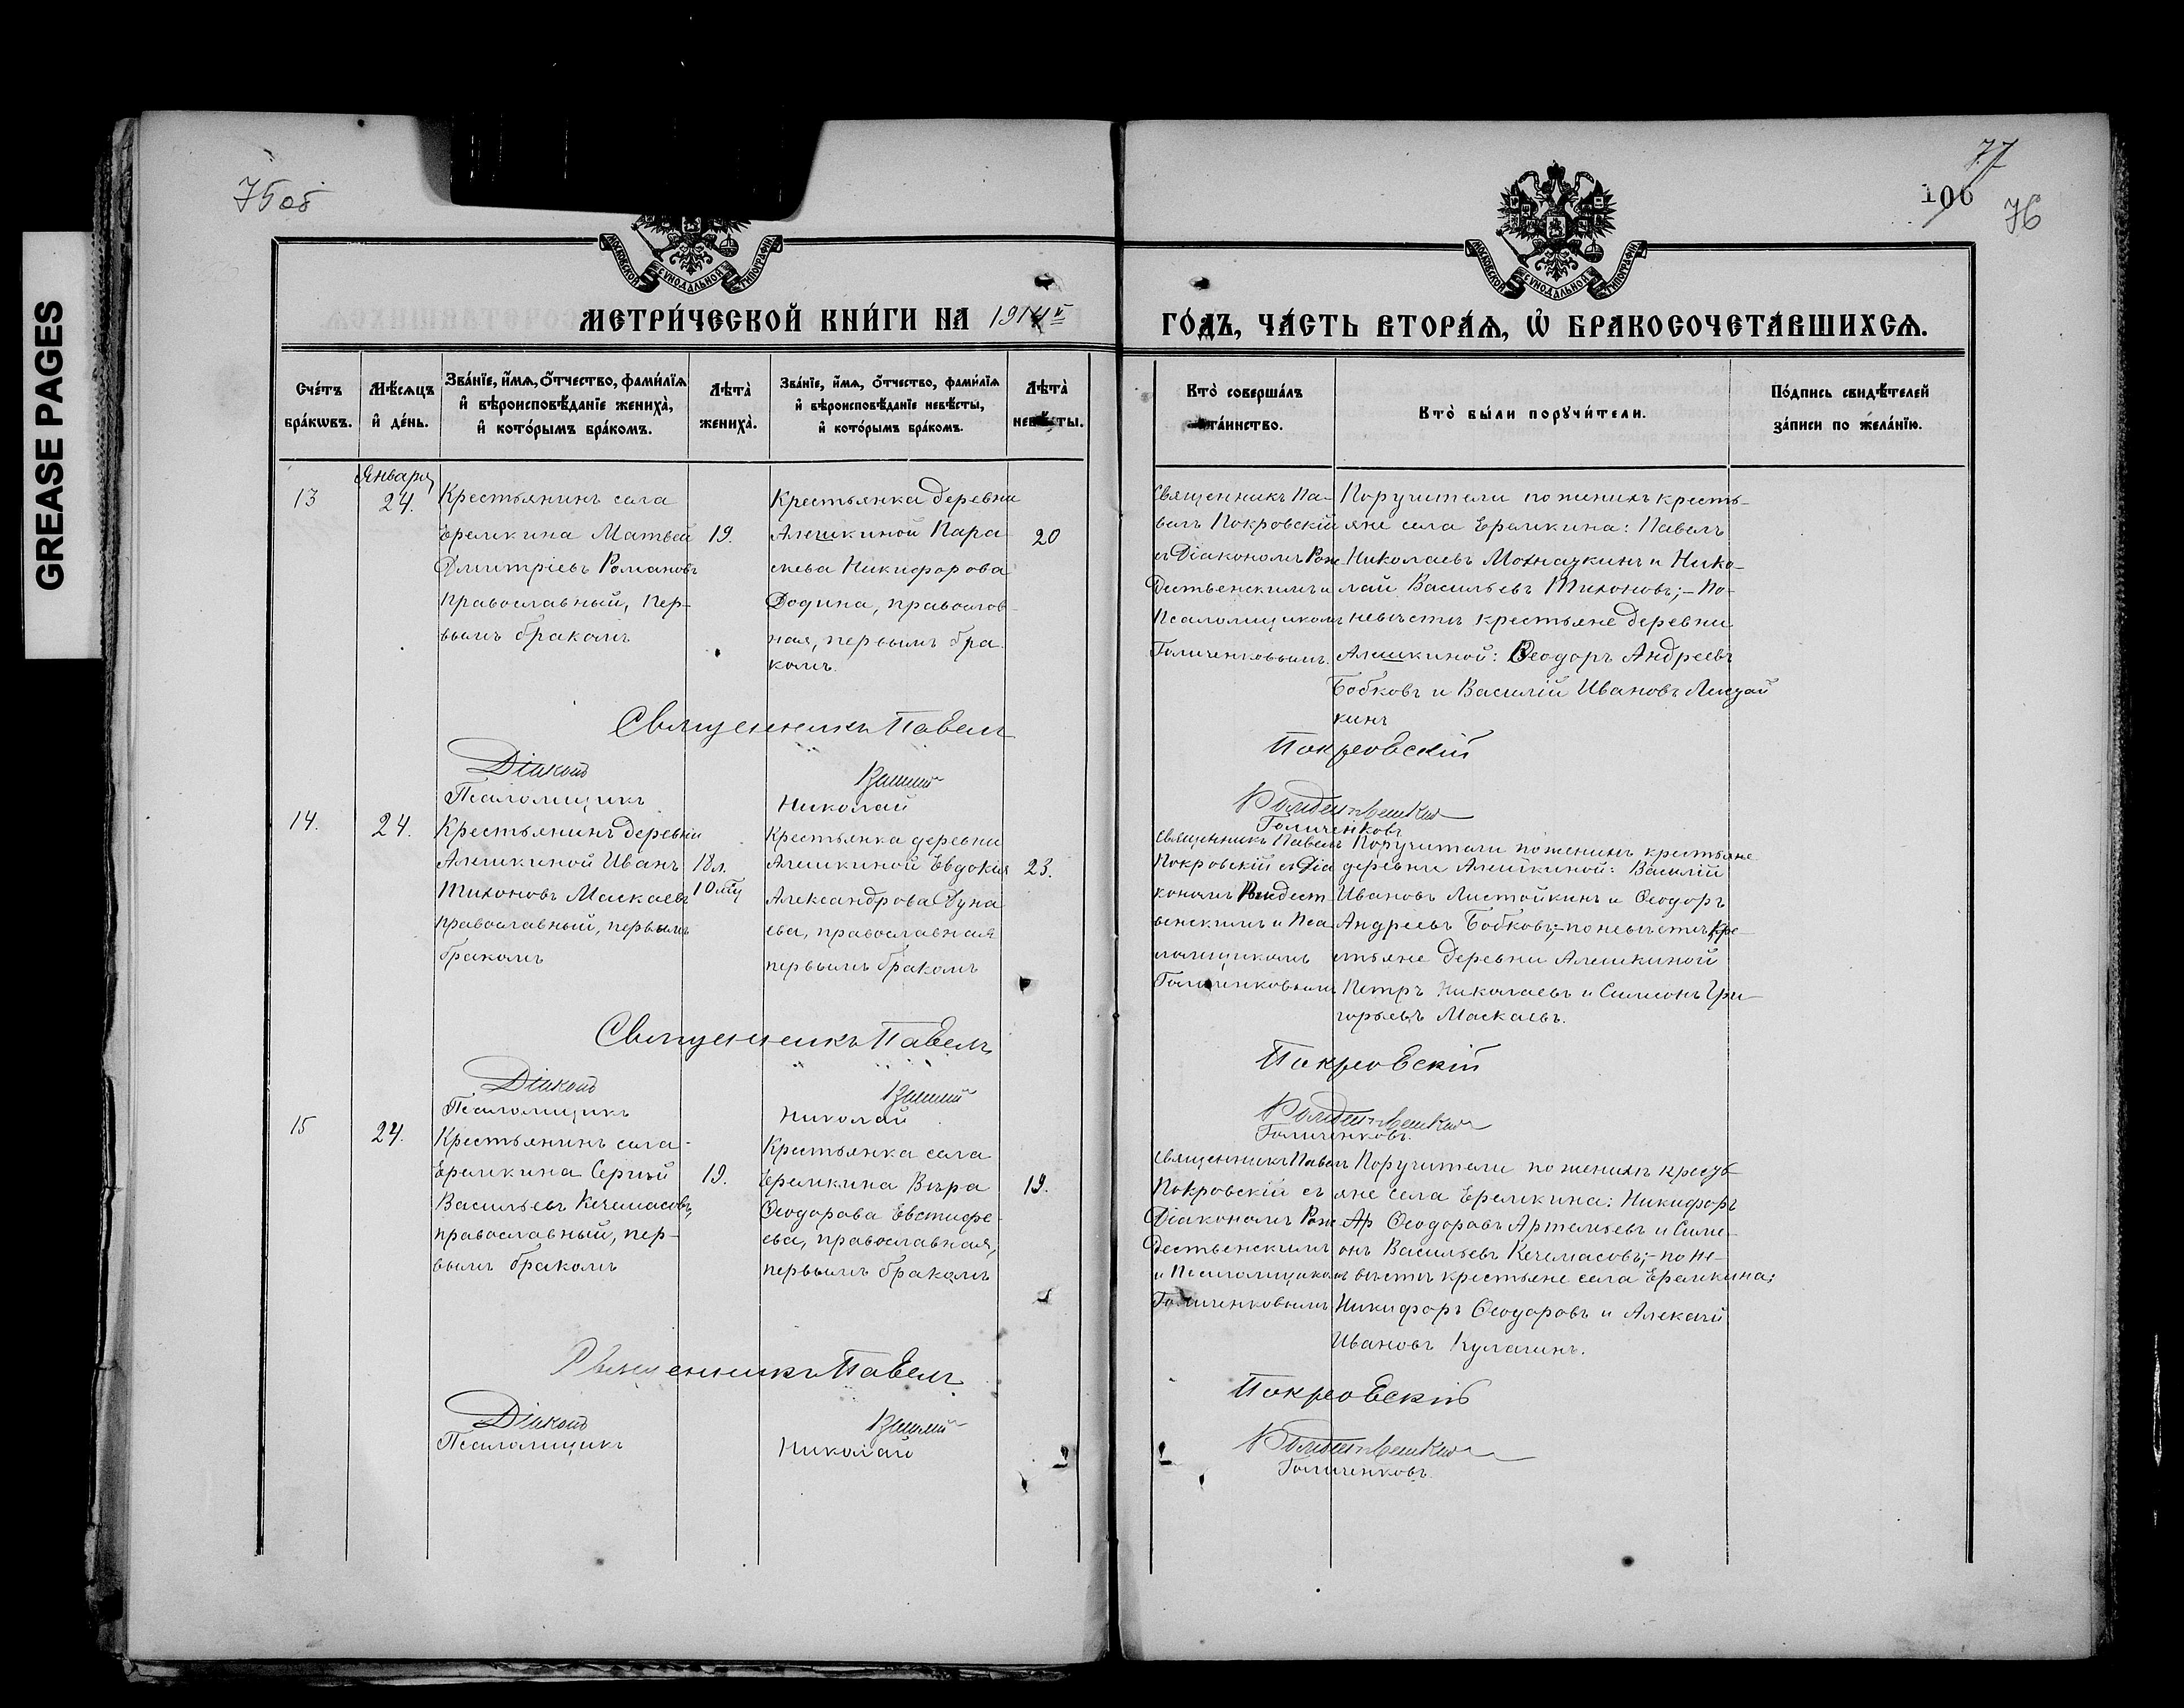 GREASE PAGES
75 об
77
106
76
МОСКОВСКОЙ СѴНОДАЛЬНОЙ ТИПОГРАФІИ
МОСКОВСКОЙ СѴНОДАЛЬНОЙ ТИПОГРАФІИ
МЕТРИ́ЧЕСКОЙ КНИ́ГИ НА 1914й
ГО́ДЪ, ЧА́СТЬ ВТОРА́Ѧ, Ѡ҆ БРАКОСОЧЕТА́ВШИХСѦ.
Сче́тъ
бра́кѡвъ.
Мѣ́сѧцъ
и҆ де́нь.
Зва́нїе, и҆́мѧ, ѻ҆́тчество, фами́лїѧ
и҆ вѣроисповѣ́данїе жениха̀,
и҆ кото́рымъ бра́комъ.
Лѣ̑та̀
жениха̀.
Зва́нїе, и҆́мѧ, ѻ҆́тчество, фами́лїѧ
и҆ вѣроисповѣ́данїе невѣ́сты,
и҆ кото́рымъ бра́комъ.
Лѣ̑та̀
невѣ́сты.
Кто̀ соверша́лъ
та́инство.
Кто̀ бы́ли порꙋчи́тели.
По́дпись свидѣ́телей
за́писи по жела́нїю.
Января
13
24.
Крестьянинъ села
Еремкина Матвей
Дмитріевъ Романовъ
православный, пер-
вымъ бракомъ
19.
Крестьянка деревни
Алешкиной Пара
скева Никифорова
Додина, православ-
ная, первымъ бра
комъ.
20
Священникъ Па-
велъ Покровскій
съ Діакономъ Рож
дественскимъ и
Псаломщикомъ
Голиченковымъ.
Поручители по женихѣ кресть-
яне села Еремкина: Павелъ
Николаевъ Мохначкинъ и Нико-
лай Васильевъ Тихоновъ; - По-
невѣстѣ крестьяне деревни
Алешкиной: Ѳеодоръ Андреевъ
Бобковъ и Василій Ивановъ
кинъ
Священникъ Павелъ
Покровскій
Діаконъ
Василій
Рождественскій
Псаломщикъ
Николай
Голиченковъ
14.
24.
Крестьянинъ деревни
Алешкиной Иванъ
Тихоновъ Маскаевъ
православный, первымъ
бракомъ
18 л.
10 мц
Крестьянка деревни
Алешкиной Евдокія
Александрова Дуна
ева, православная
первымъ бракомъ
23.
Священникъ Павелъ
Покровскій съ Діа
кономъ Рождест
венскимъ и Пса
ломщикомъ
Голиченковымъ
Поручители по женихѣ крестьяне
деревни Алешкиной: Василій
Ивановъ Листайкинъ и Ѳеодоръ
Андреевъ Бобковъ; - по невѣстѣ кре-
стьяне деревни Алешкиной
Петръ Николаевъ и Симеонъ Гри-
горьевъ Маскаевъ.
Священникъ Павелъ
Покровскій
Діаконъ
Василій
Рождественскій
Псаломщикъ
Николай
Голиченковъ.
15
24.
Крестьянинъ села
Еремкина Сергѣй
Васильевъ Кечемасовъ,
православный, пер-
вымъ бракомъ
19.
Крестьянка села
Еремкина Вѣра
Ѳеодорова Евстифе-
ева, православная,
первымъ бракомъ
19.
Священникъ Павелъ
Покровскій съ
Діакономъ Рож
дественскимъ
и Псаломщикомъ
Голиченковымъ
Поручители по женихѣ кресть
яне села Еремкина: Никифоръ
Ар Ѳеодоровъ Артемьевъ и Симе-
онъ Васильевъ Кечемасовъ; - по не-
вѣстѣ крестьяне села Еремкина:
Никифоръ Ѳеодоровъ и Алексѣй
Ивановъ Кулагинъ.
Священникъ Павелъ
Покровскій
Діаконъ
Василій
Рождественскій
Псаломщикъ
Николай
Голиченковъ.